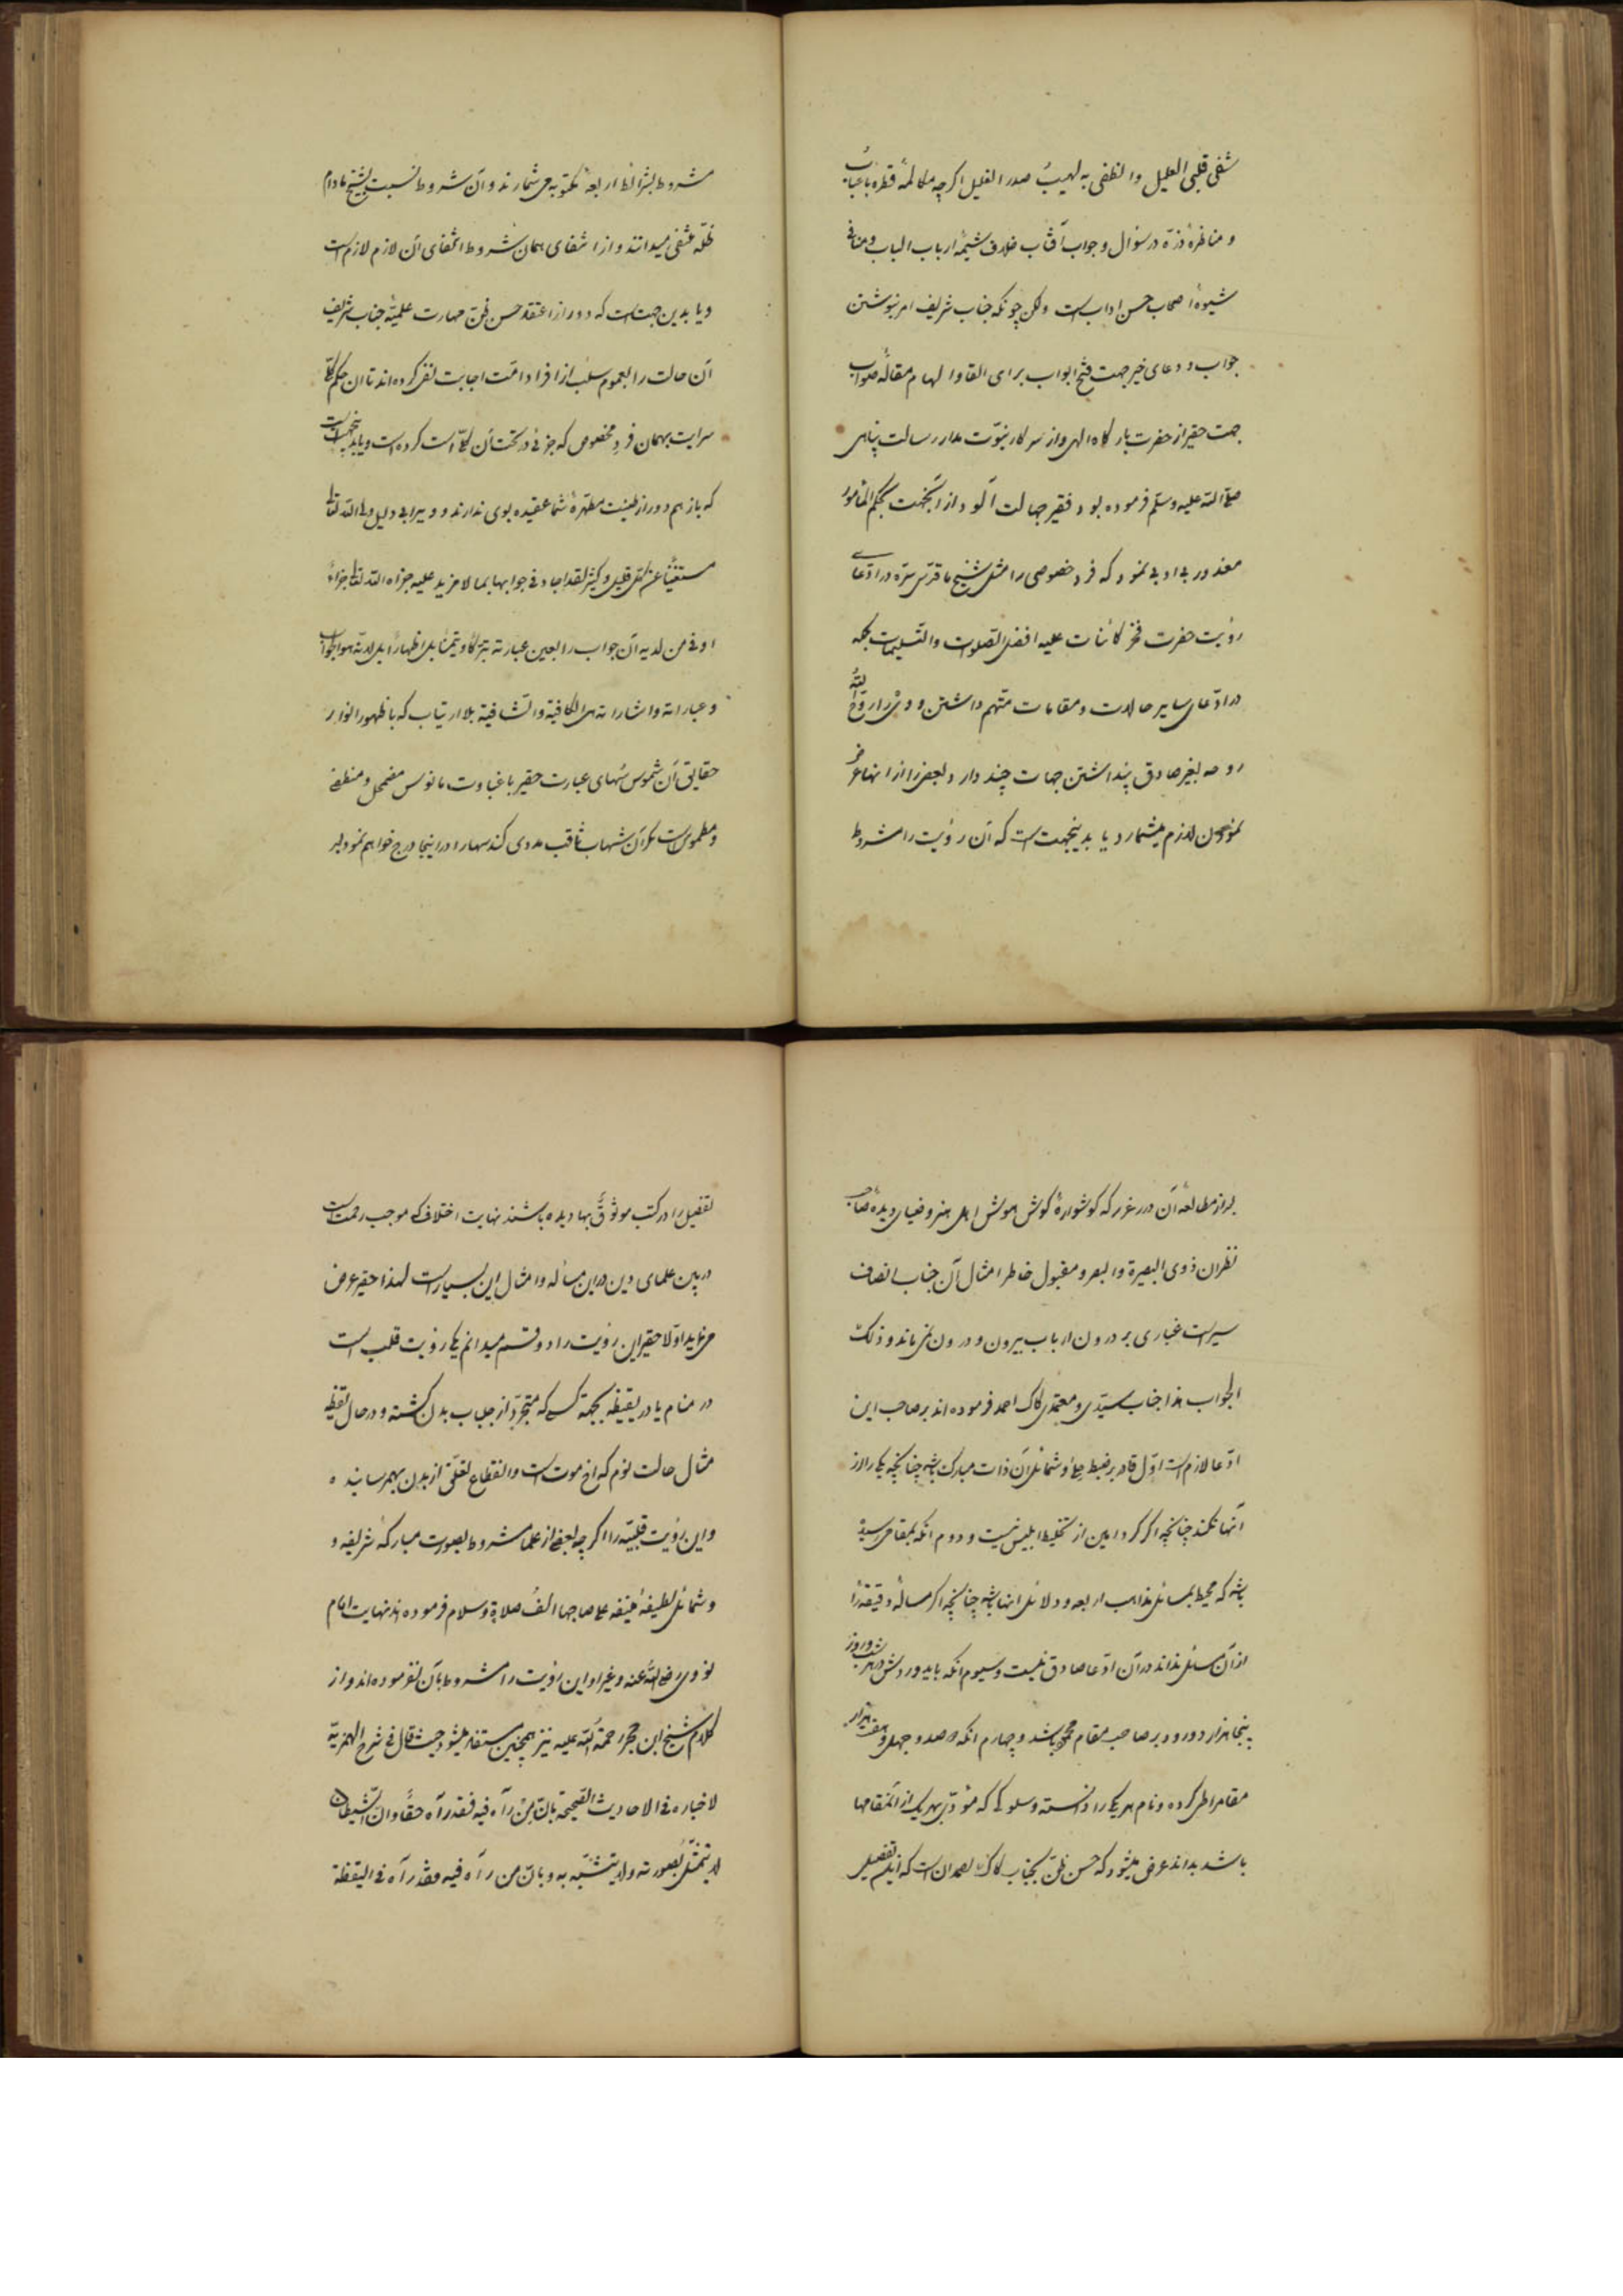 شفی قلبی العلیل وانطفی به لهیب صدر الغلیل اکرچه مکالمهٔ قطره باعباب
و مناظرهٔ ذرّه در سؤال و جواب آفتاب خلاف شیمهٔ ارباب الباب و منافی
شیوهٔ اصحاب حسن اداب است ولکن چونکه جناب شریف امر بنوشتن
جواب و دعای خیر جهت فتح ابواب برای القا و الهام مقالهٔ صواب
جهت حقیر از حضرت بارکاه الهی و از سرکار نبوّت مدار رسالت پناهی
صلّی اللّه علیه وسلّم فرموده بود فقیر جهالت آلود از آنجهت بحکم المأمور
معذور بی ادبی نمود که فرد خصوصی را مثل شیخ ما قدّس سرّه در ادّعای
رؤیت حضرت فخر کائنات علیه افضل التّصلوات والتّسلیمات بلکه
در ادّعای سایر حالات و مقامات متّهم داشتن و وی را روّح اللّه
روحه بغیر صادق پنداشتن جهات چند دارد بعضی را از انها عرض
نمودن لازم میشمارد یا بدینجهت است که آن رؤیت را مشروط
مشروط بشرائط اربعهٔ مکتوبه می شمارند و آن شروط نسبت بشیخ ما دام
ظلّه منتفی میدانند و از انتفای همان شروط انتفای آن لازم لازم است
و یا بدین جهت است که دور از اعتقد حسن ظنّ مهارت علمیّهٔ جناب شریف
آن حالت را بعموم سلب از افراد امّت اجابت نفی کرده اند تا ان حکم کلّی
سرایت بهمان فرد مخصوص که جزئی در تحت آن کلّی است کرده است و یا بدینجهت است
که بازهم دور از طینت مطهّرهٔ شما عقیده بوی ندارند و ویرا بی دلیل ولی اللّه تعالی
مستغنیًا عن کلّ قلیل و کثیر لقد اجاد فی جوابها بما لا مزید علیه جزاه اللّه تعالی جزاءً
اوفی من لدیه آن جواب را بعین عبارته تبرّکًا و تیمّنًا بل اظهارًا بل لانّه هو الجواب
و عباراته و اشاراته هی الکافیة والشّافیة بلا ارتیاب که با ظهور انوار
حقایق آن شموس سُهای عبارت حقیر با غباوت مانوس مضمحل و منطفی
و مطموس است مکر آن شهاب ثاقب مددی کند سهارا در اینجا درج خواهم نمود لیر
لیر از مطالعهٔ آن درر غرر که کوشوارهٔ کوش هوش اهل هنر و ضیای دیدهٔ صاحب
نظران ذوی البصیرة والبصر و مقبول خاطر امثال آن جناب انصاف
سیر است غباری بر درون ارباب بیرون و درون نمی ماند و ذلک
الجواب هذا جناب سیّدی و معتمدی کاک احمد فرموده اند بر صاحب این
ادّعا لازم است اوّل قادر بر ضبط حلیه و شمائل آن ذات مبارک باشد چنانچه یکی را از
آنها نکند چنانچه اکر کرد امین از تخلیط ابلیس نیست و دوم انکه بمقامی رسیده
باشد که محیط بمسائل مذاهب اربعه و دلائل انها باشد چنانچه اکر مسألهٔ دقیقه را
از آن مسائل نداند در آن ادّعا صادق نیست و سیوم انکه باید وردش در هر شب و روز
پنجا هزار درود بر صاحب مقام محمود باشد و چهارم انکه دو صد و چهل و هفت هزار
مقام را طی کرده و نام هر یک را دانسته و سلوکی که مؤدّی بهر یک از آنمقامها
باشد بداند عرض میشود که حسن ظنّ بجناب کاک احمد ان است که این تفصیل
تفصیل را در کتب موثوق بها دیده باشند نهایت اختلافی که موجب رحمت است
در بین علمای دین در این مسأله و امثال این بسیار است لهذا حقیر عرض
می نماید اوّلا حقیر این رؤیت را دو قسم میدانم یکی رؤیت قلب است
در منام یا در یقیظه بجهة کسی که متجرّد از جلباب بدن کشته و در حال یقیظه
مثال حالت نوم که اخ موت است و انقطاع تعلّقی از بدن بهمرسانیده
و این رؤیت قلبیّه را اکرچه بعضی از علما مشروط بصورت مبارکهٔ شریفه و
و شمائل لطیفهٔ منیفه علی صاحبها الف صلاة وسلام فرموده اند نهایت امام
نووی رضی اللّه عنه و غیر او این رؤیت را مشروط بآن نفرموده اند و از
کلام شیخ ابن حجر رحمة اللّه علیه نیز همچنین مستفاد میشود حیث قال فی شرح الهمزیّة
لاخباره فی الاحادیث الصّحیحة بانّ من رآه فیه فقد رآه حقًّا وانّ الشّیطان
لا یتمثّل بصورته ولا یتشبّه به و بانّ من رآه فیه فقد رآه فی الیقظة